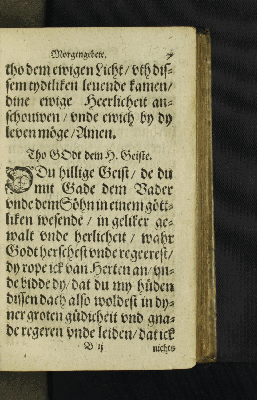 Morgengebete.
tho dem ewigen Licht / vth dis-
sem tydtliken leuende kamen /
dine ewige Heerlicheit an-
schouwen / vnde ewich by dy
leven möge / Amen.
Tho GOdt dem H. Geiste.
O Du hillige Geist / de du
mit Gade dem Vader
vnde dem Söhn in einem gött-
liken wesende / in geliker ge-
walt vnde herlicheit / wahr
Godt herschest vnde regeerest /
dy rope ick van Herten an / vn-
de bidde dy / dat du my hüden
dissen dach also woldest in dy-
ner groten güdicheit vnd gna-
de regeren vnde leiden / dat ick
B ij nichts